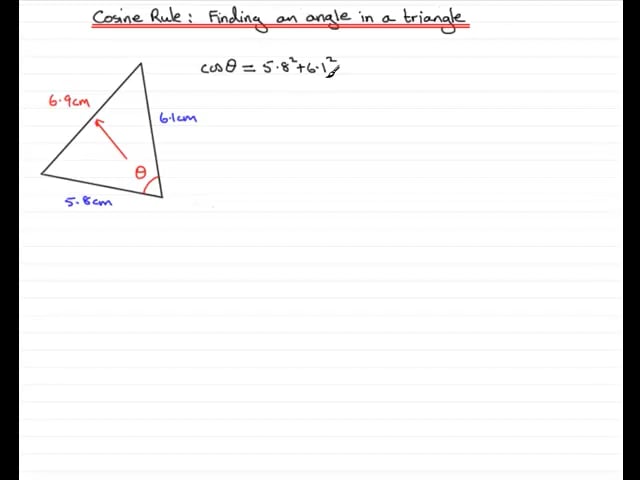 Cosine Rule: Finding an angle in a triangle
cosθ = 5.8²+6.1²
6.9cm
6.1cm
θ
5.8cm